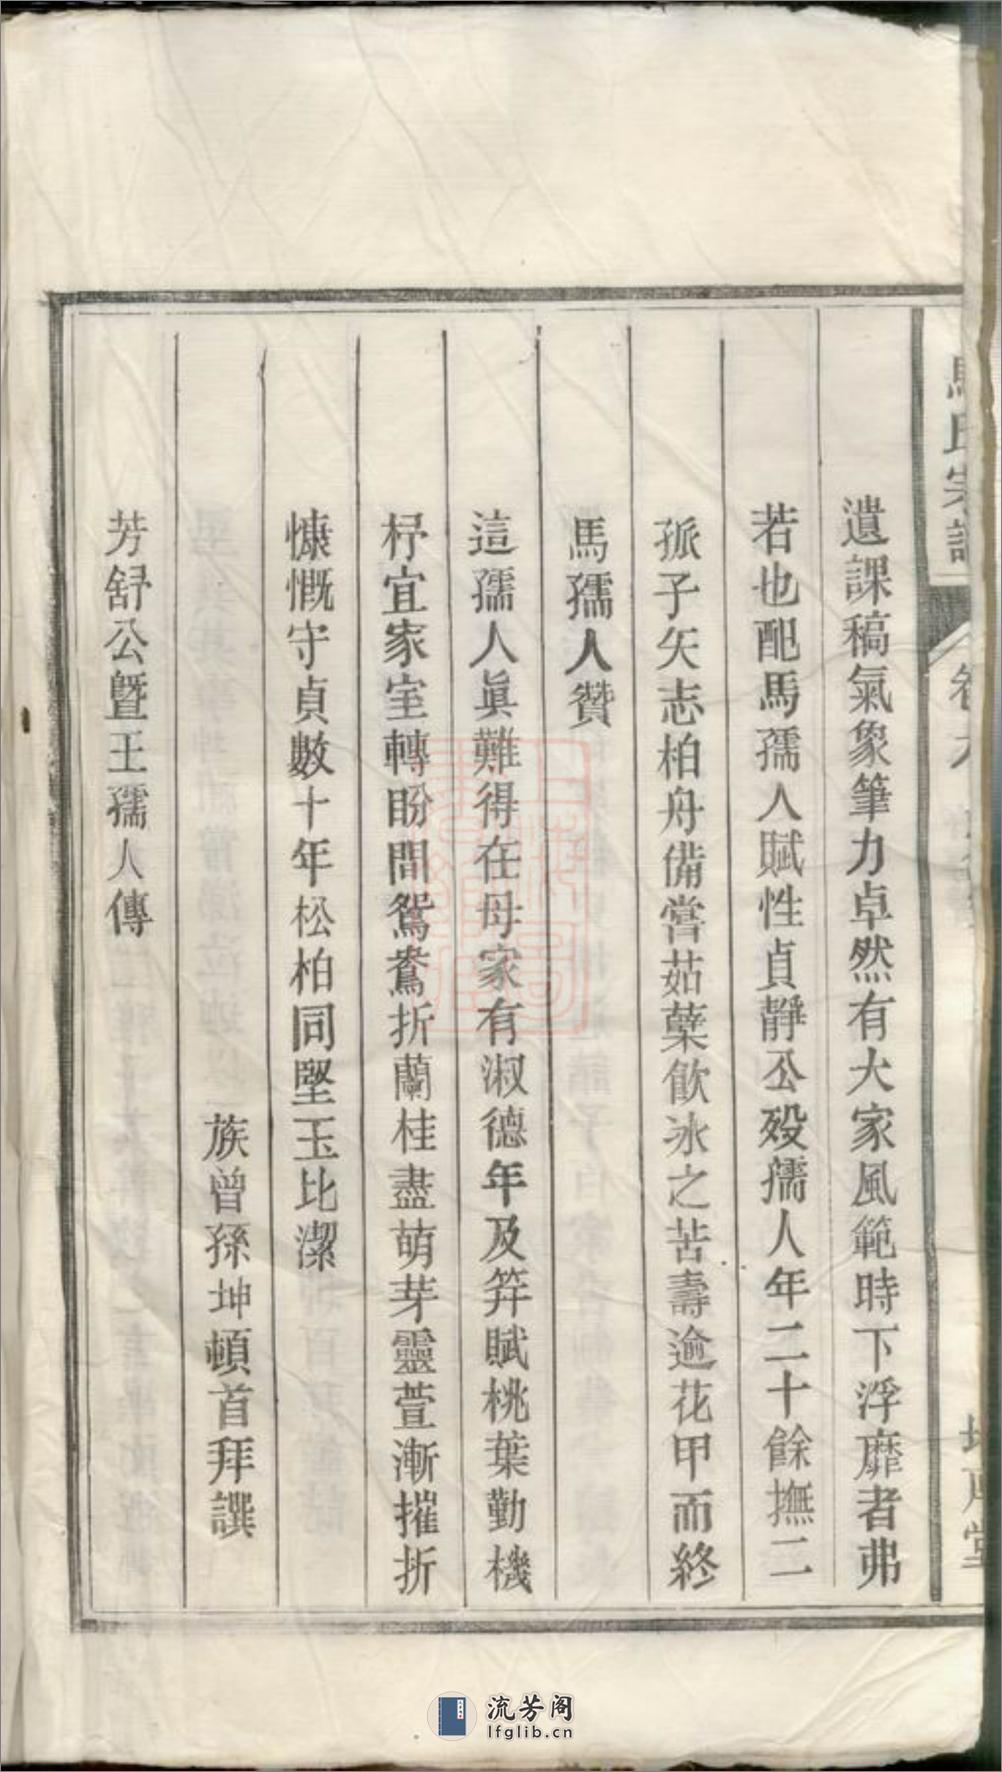 馬氏宗譜
遺課稿氣象筆力卓然有大家風範時下浮靡者弗
若也配馬孺人賦性貞靜公歿孺人年二十餘撫二
孤子矢志柏舟備嘗茹蘗飲冰之苦壽逾花甲而終
馬孺人贊
這孺人眞難得在母家有淑德年及笄賦桃葉勤機
杼宜家室轉盼間鴛鴦折蘭桂盡萌芽靈萱漸摧折
慷慨守貞數十年松柏同堅玉比潔
族曾孫坤頓首拜譔
芳舒公曁王孺人傳
流芳阁
lfglib.cn